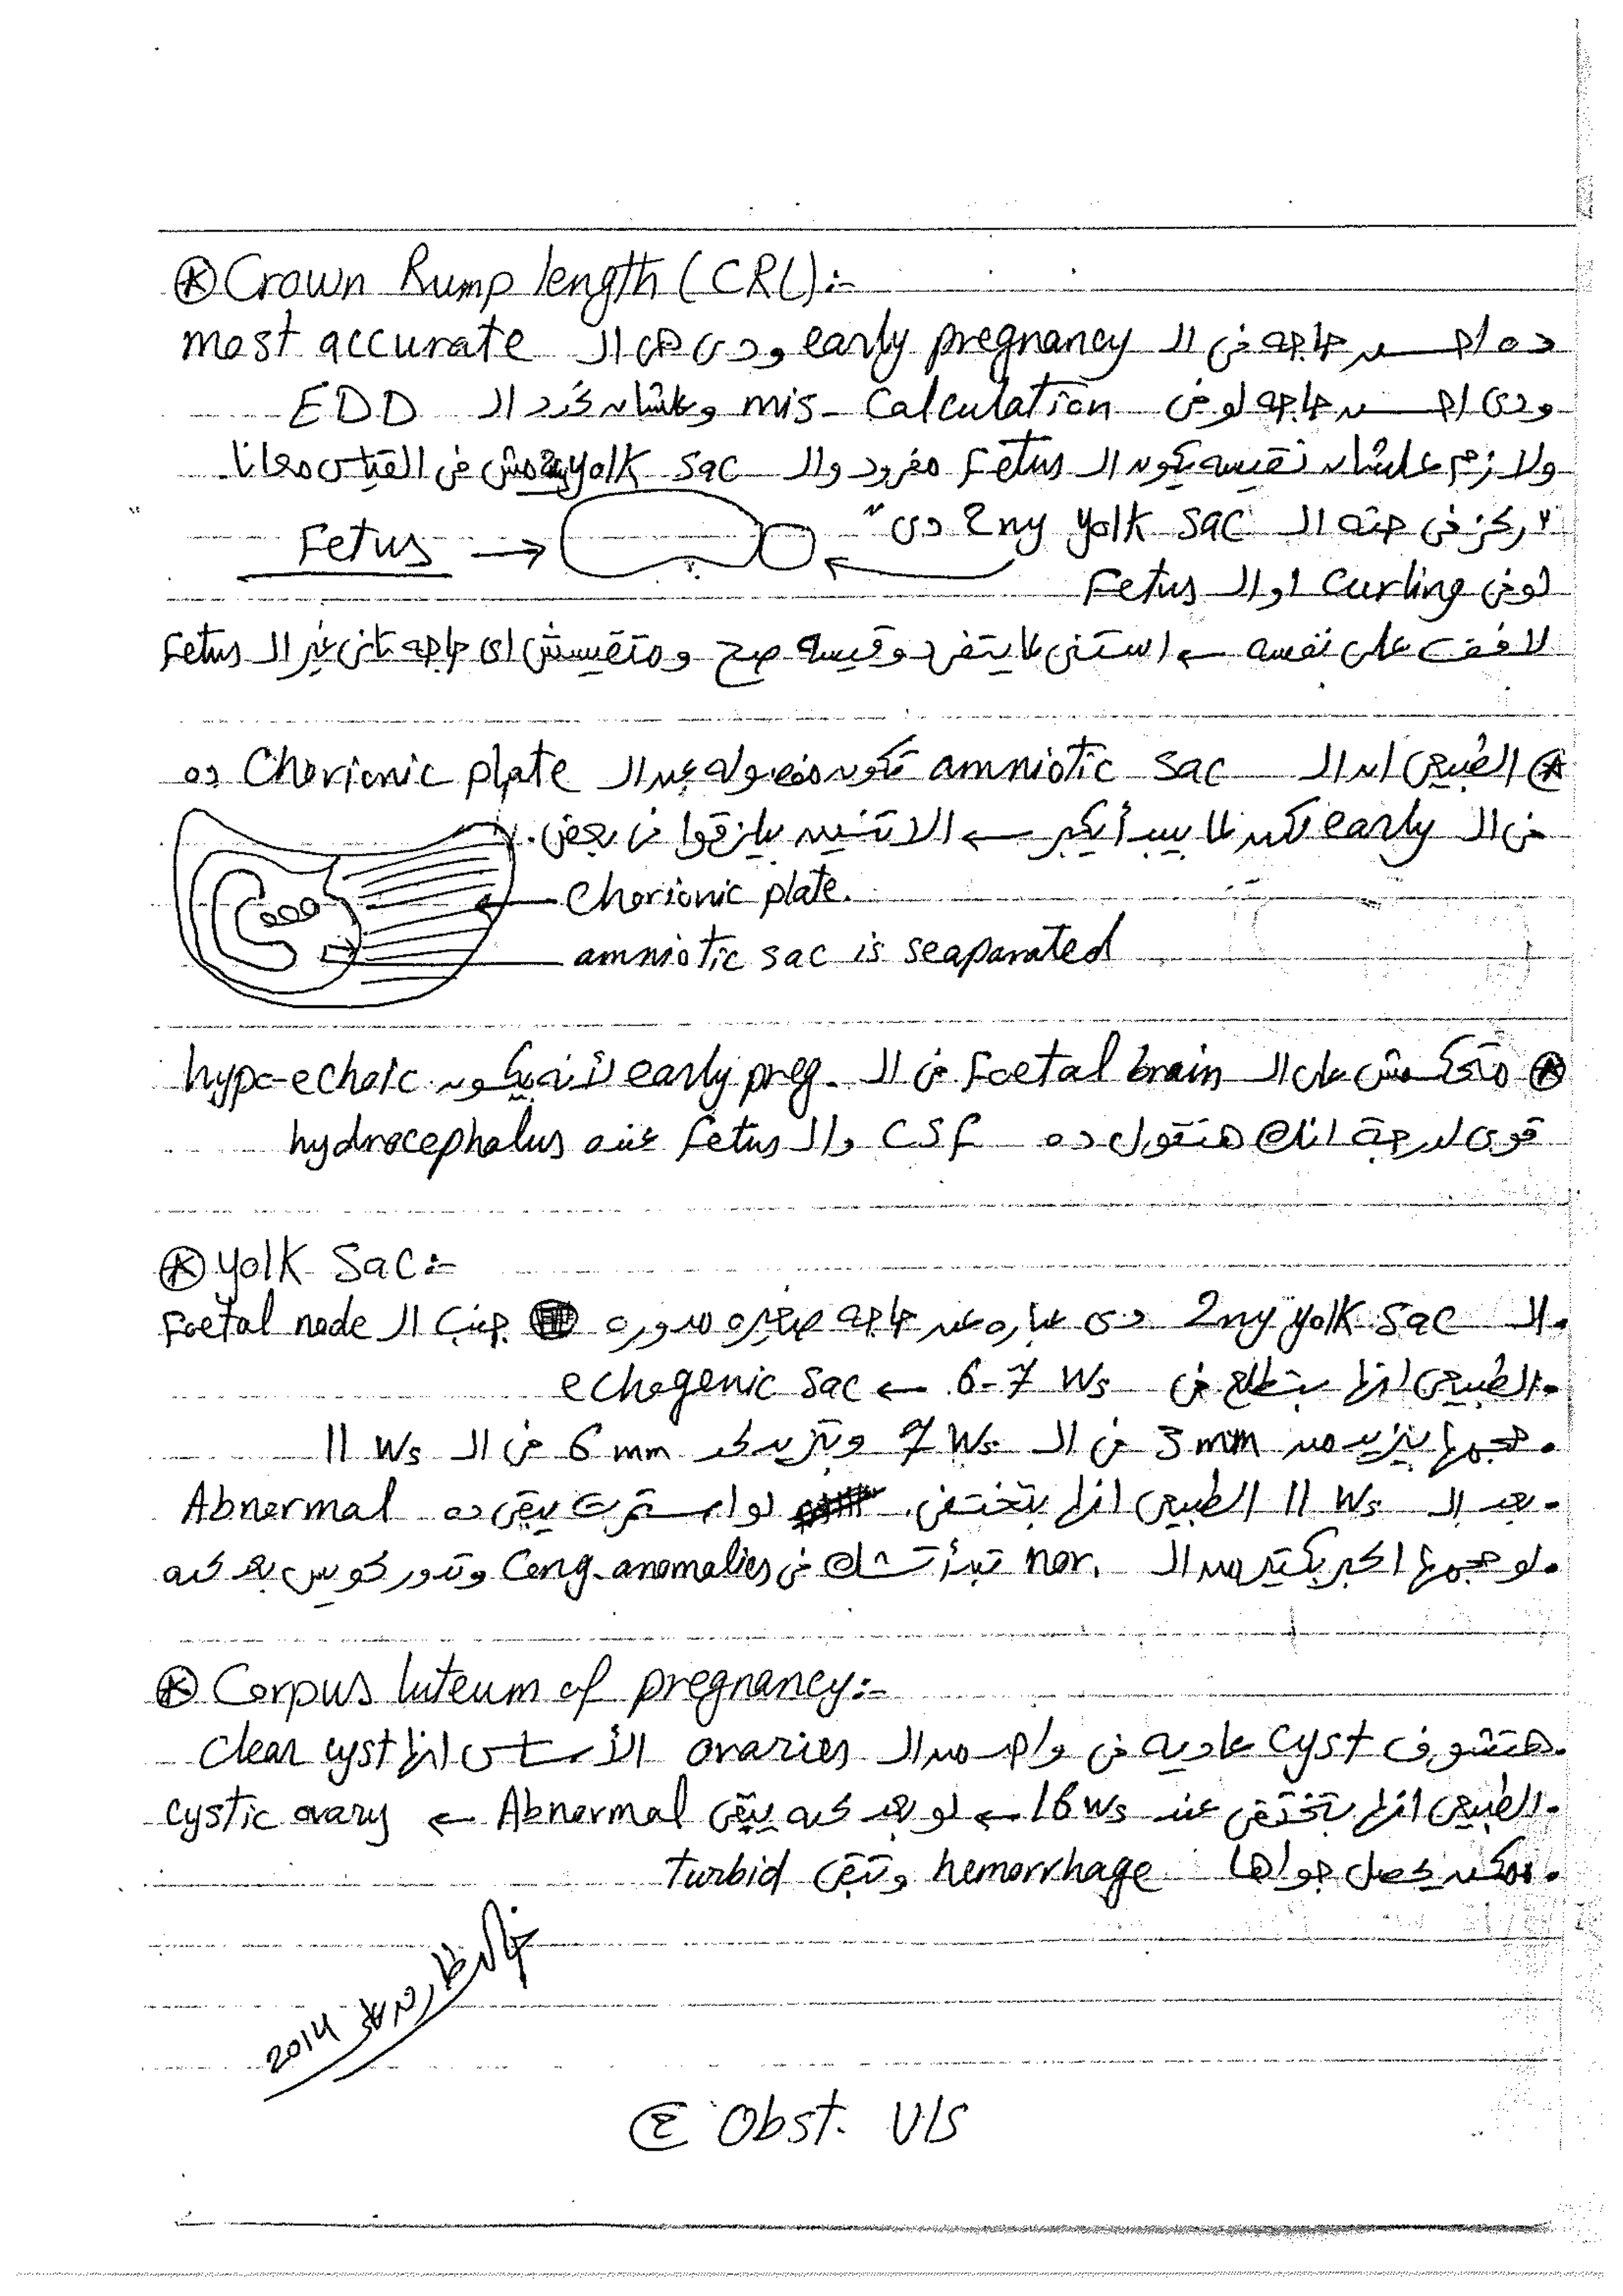 ⊛ Crown Rump length (CRL):-
ده احسن حاجه فى الـ early pregnancy ودى هى الـ most accurate
ودى احسن حاجه لو فى mis-calculation وعلشان نحدد الـ EDD
ولازم علشان نقيسه يكون الـ Fetus مفرود والـ yolk sac مش فى القياس معانا
"ركز فى حته الـ 2ny yolk sac دى"
Fetus →
لو فى curling او الـ Fetus
لافف على نفسه ← استنى لما يتفرد وقيسه صح ومتقيسش اى حاجه تانى غير الـ Fetus
⊛ الطبيعى ان الـ amniotic sac تكون مفصوله عن الـ Chorionic plate ده
فى الـ early لكن لما يبدأ يكبر ← الاتنين بيلزقوا فى بعض.
Chorionic plate.
amniotic sac is seaparated
⊛ متحكمش على الـ Foetal brain فى الـ early preg. لأنه بيكون hypo-echoic
قوى لدرجة انك هتقول ده CSF والـ Fetus عنده hydrocephalus
⊛ Yolk Sac:-
.الـ 2ny yolk sac دى عباره عن حاجه صغيره مدوره جنب الـ Foetal node
.الطبيعى انها بتطلع فى 6-7 Ws ← echogenic sac
.حجمها بيزيد من 3mm فى الـ 7 Ws وبتزيد لحد 6mm فى الـ 11 Ws
.بعد الـ 11 Ws الطبيعى انها بتختفى، لو استمرت يبقى ده Abnormal
.لو حجمها اكبر بكتير من الـ nor. تبدأ تشك فى Cong. anomalies وتدور كويس بعد كده
⊛ Corpus luteum of pregnancy:-
.هتشوف cyst عاديه فى واحد من الـ ovaries الأساس انها clear cyst
.الطبيعى انها بتختفى عند 16 Ws ← لو بعد كده يبقى Abnormal ← cystic ovary
.ممكن يحصل جواها hemorrhage وتبقى turbid
2014
④ Obst. U/S